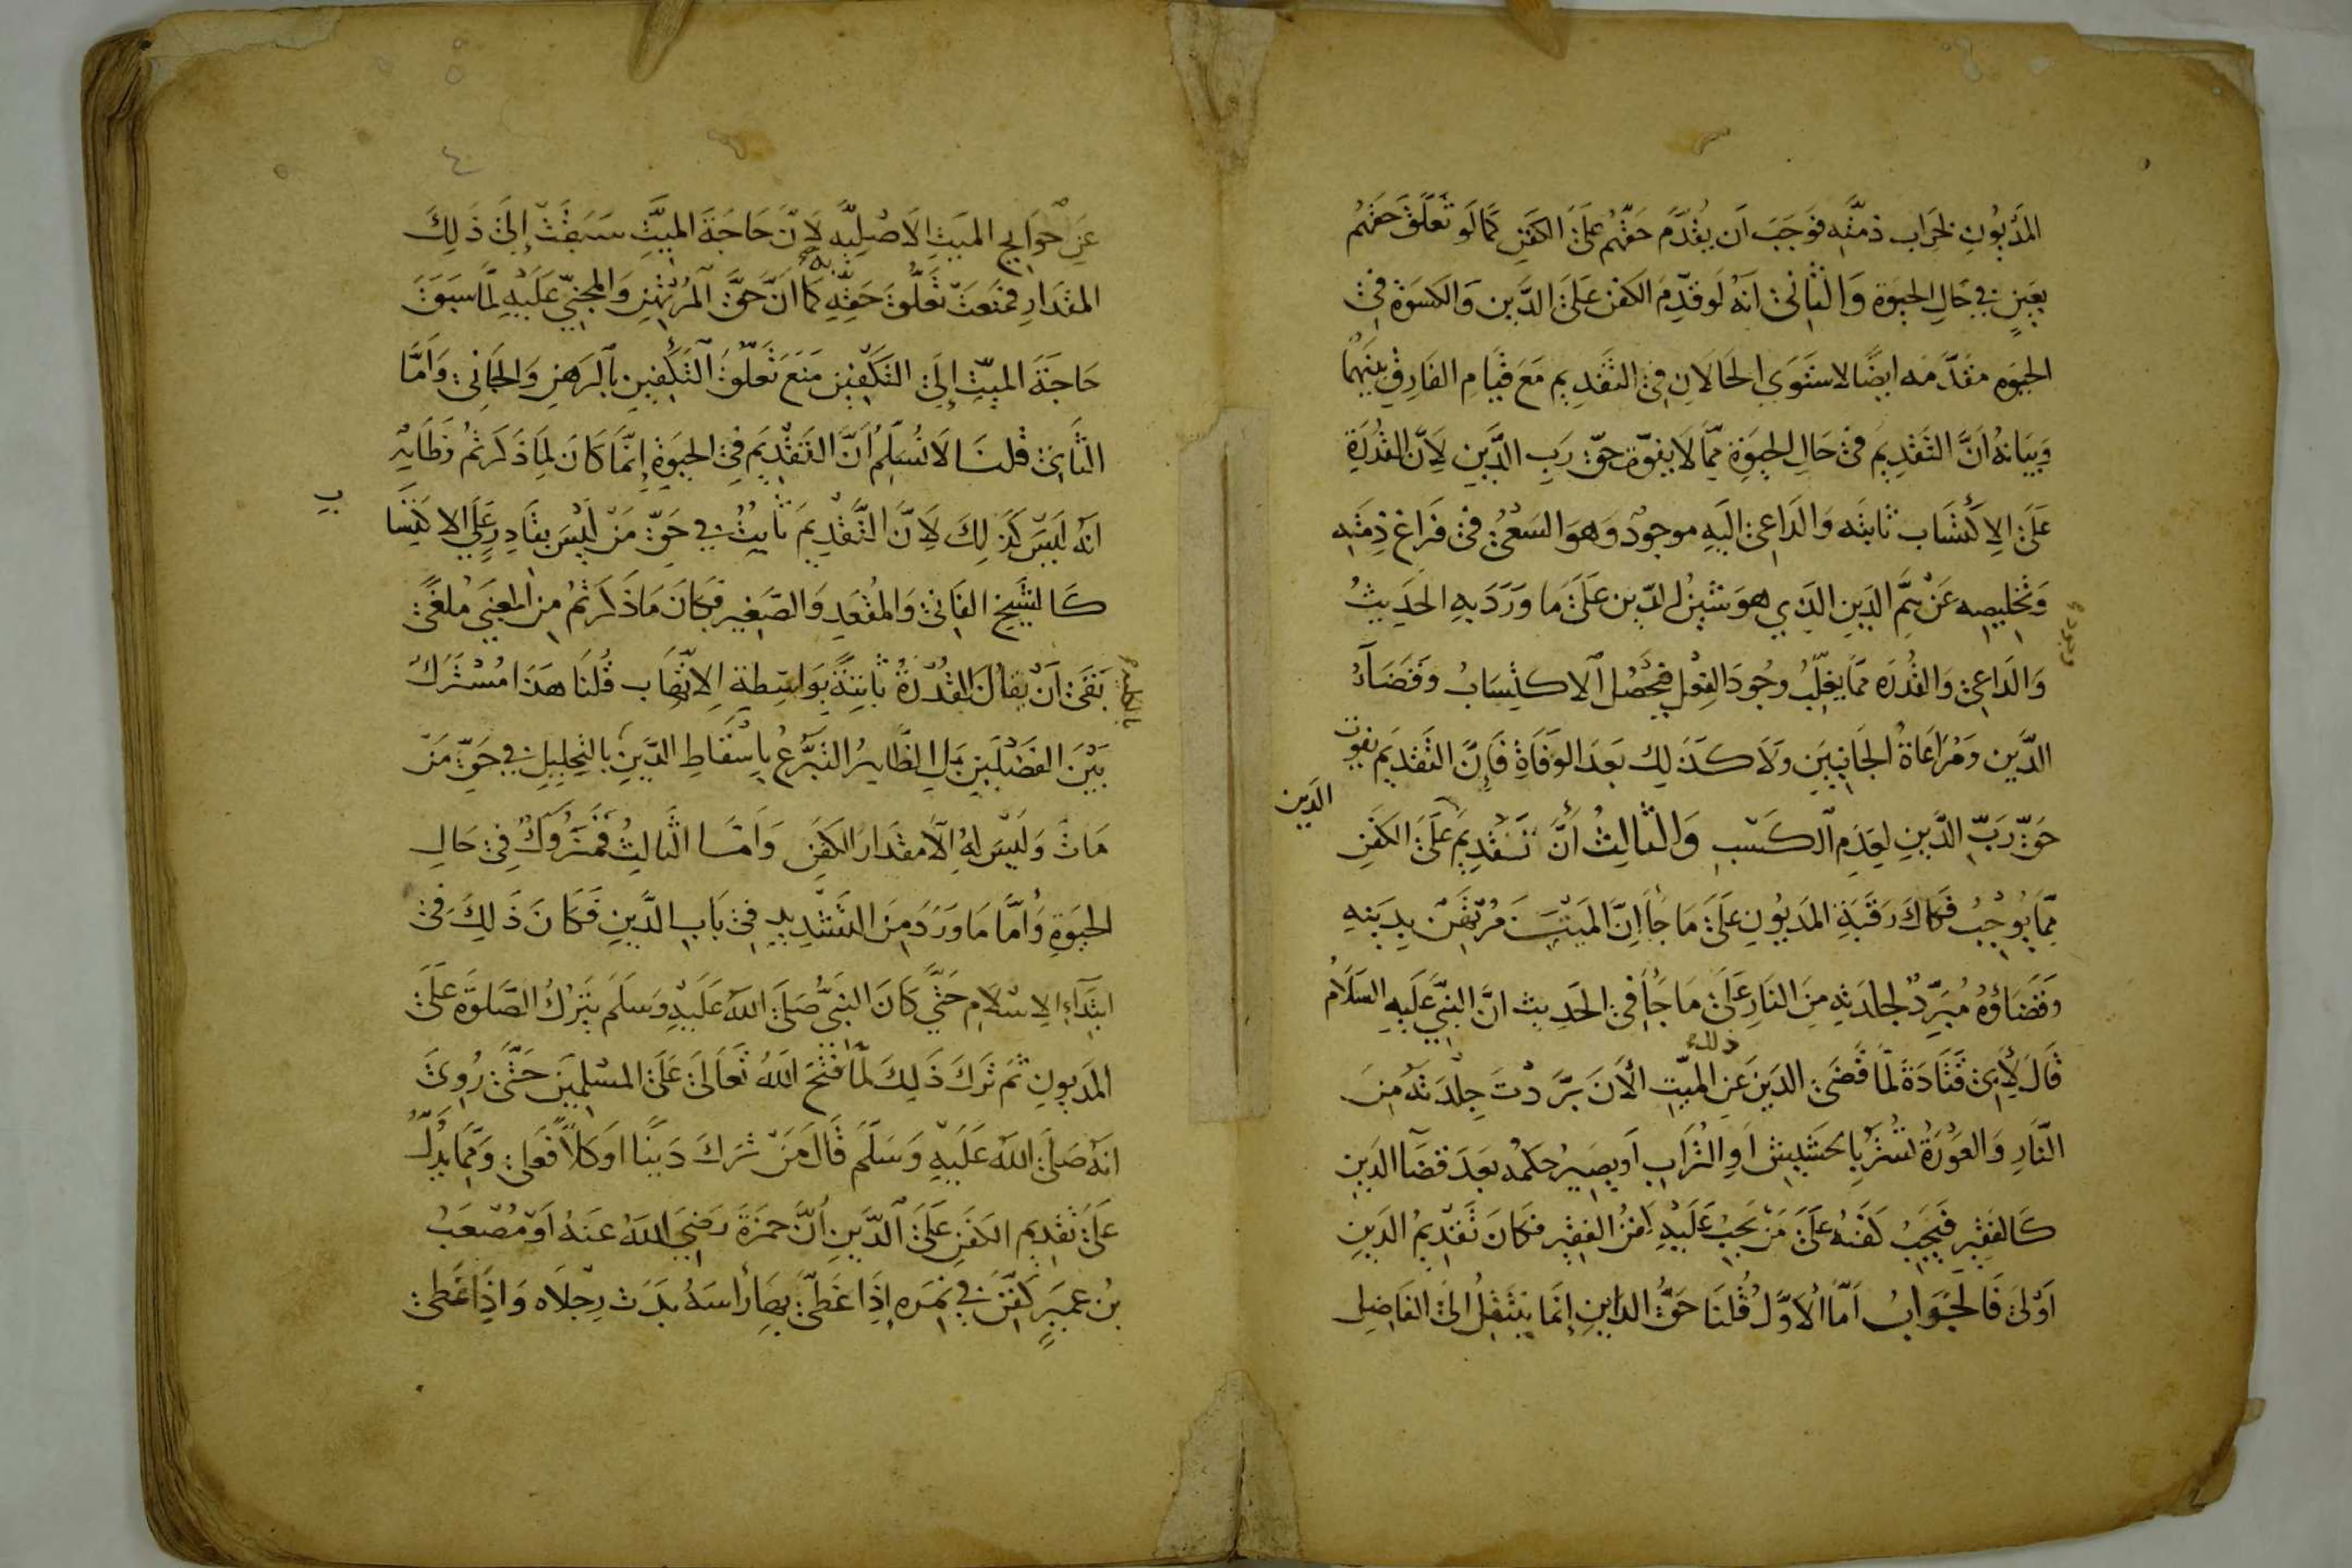 المَدْيُونِ لخراب ذمّته فَوَجَبَ اَن يُقدَّم حَقّهُم عَلَى الكفَنِ كمَا لَو تَعَلَّقَ حَقهُم
بعَينٍ في حَالِ الحيوة وَالثَّانى انهُ لَو قدِّمَ الكفن عَلَى الدَّين وَالكسوَة فى
الحيَوةِ مقَدّمَه ايضًا لاستَوَى الحَالَان فى التَّقدِيم مَعَ قيَامِ الفَارِقِ بينَهُمَا
وَبَيَانهُ اَنَّ التَقْدِيمَ فى حَال الحيَوَةِ ممَّا لَا يفوّت حَقّ رَبِ الدَّين لِاَنَّ القُدْرَة
عَلَى الاِكتسَاب ثابتَه وَالدَاعى اليَهِ موجودٌ وَهوَ السَعْىُ فى فَرَاغ ذِمَتِه
وَتَخليصِه عَنْ هَمِّ الدَينِ الذي هوَ شَينُ الدّين عَلَى مَا وَرَدَ بهِ الحَدِيثُ
وَالدَاعِى وَالقُدْرَه ممّا يغلِّبُ وجُودَ الفِعْلِ فيَحْصُل الاكتِسَابُ وَقَضَآءُ
الدَّين وَمُرَاعَاةُ الجَانِبَيَنِ وَلَا كَذلِك بَعدَ الوَفَاةِ فَإِنَّ التَقدِيمَ يفوت
حَقّ رَبّ الدَّينِ لِعَدَمِ الكَسْبِ وَالثَالِثُ أَنَّ تَقْدِيمَ الدَين عَلَى الكَفَنِ
ممَّا يُوجِبُ فكاكَ رَقَبَةِ المَديُونِ عَلَى مَا جَأَ اِنَّ المَيّتَ مُرْتَهَن بِدَينِهِ
وَقَضَاؤُهُ مُبَرِّدٌ لجلدَتِهِ مِنَ النَارِ عَلَى مَا جَأَ فى الحَدِيث انَّ النبىَّ عَلَيهِ السَلَامُ
قَالَ لِأَبى قَتَادَةَ لمّا قضَى ذلك الدَينَ عَنِ الميّتِ الْاَنَ بَرَّدْتَ جِلْدَتَهُ مِنَ
النَّارِ وَالعَوْرَةُ تستَرُ بالحَشيش اَوِ التُرَابِ اَو يصِيرُ حكمُه بَعدَ قضَآ الدَينِ
كَالفقِيرِ فيَجِبُ كَفنُهُ عَلَى مَن يَجِبُ عَلَيْهِ كفنُ الفقِير فكانَ تَقْدِيمُ الدَينِ
اَوْلىَ فَالجَوَابُ اَمّا الاَوَّلُ قُلنَا حَقُّ الدَاينِ إِنمَا يَنتَقِلُ الىَ الفَاضِلِ
عَنْ حَوَايجِ المَيتِ الاَصْلِيَّه لِاَنَّ حَاجَةَ الميَّتِ سَبَقَتْ إِلَى ذَلِكَ
المِقدَارِ فمَنعَتْ تعَلُّقَ حَقِّهِ به كمَا اَنَّ حَقَّ المُرْتَهنِ وَالمجنيّ عَلَيْهِ لمّا سَبَقَ
حَاجَةَ الميّتِ إِلَى التَكفِينِ مَنَعَ تَعَلُّقَ التَكْفِينِ بالرَهنِ وَالجَانى وَاَمَّا
الثَّانى قُلنَا لَا نُسَلّمُ اَنَّ التَقْدِيمَ فى الحيَوةِ إِنّمَا كَانَ لِمَا ذَكَرتُم وَظَاهِرٌ
اَنهُ لَيسَ كَذلِكَ لِاَنَّ التَّقْدِيمَ ثَابتٌ في حَقِّ مَنْ لَيْسَ بقَادِرٍ عَلَى الاكتِسَا
ب
كَالشَيخِ الفَانى وَالمُقعَدِ وَالصَغِيرِ فكَانَ مَا ذكَرتُم مِن المعنَى مُلغًى
بَقىَ اَنْ يقَالَ القُدْرَةُ ثابتَةٌ بَوَاسِطةِ الِاتّهَاب قُلنَا هَذا مُشْتَرَكٌ
بَيْنَ الفَصْلَينِ بَلِ الظَّاهِرُ التَبَرُّعُ بإِسْقَاطِ الدَّينِ بالتحليلِ في حَقِّ مَنْ
مَاتَ وَلَيْسَ لهُ اِلَّا مقدَارُ الكفَنِ وَاَمَّا الثَّالِثُ فمَتْرُوكٌ فِى حَالِ
الحيَوةِ وَاَمَّا مَا وَرَدَ مِنَ التَشْدِيدِ فى بَابِ الدَّينِ فَكَانَ ذَلِكَ فى
ابتِدَاءِ الِاسْلَامِ حَتَّى كَانَ النَبىُّ صَلَى اللّهُ عَلَيْهِ وَسَلَمَ يَتْرُكُ الصَّلوَة عَلَى
المَديونِ ثمَ تَرَكَ ذَلِكَ لمّا فَتَحَ اللّهُ تَعَالَى عَلَى المسْلِمِينَ حَتَّى رُوىَ
انهُ صَلَى اللّهُ عَلَيْهِ وَسَلَّمَ قَالَ مَنْ تَرَكَ دَينًا اَو كَلاًّ فَعَلىّ وَممّا يَدُلُّ
عَلَى تَقدِيمِ الكَفَنِ عَلَى الدَّينِ أَنَّ حمزَةَ رَضِيَ اللّهُ عَنهُ اَوْ مُصْعَبُ
بنُ عميَرٍ كُفِّنَ في نَمِرَه إِذَا غَطّىَ بِهَا رأسَهُ بدَت رِجْلَاه وَاِذَا غَطىَ